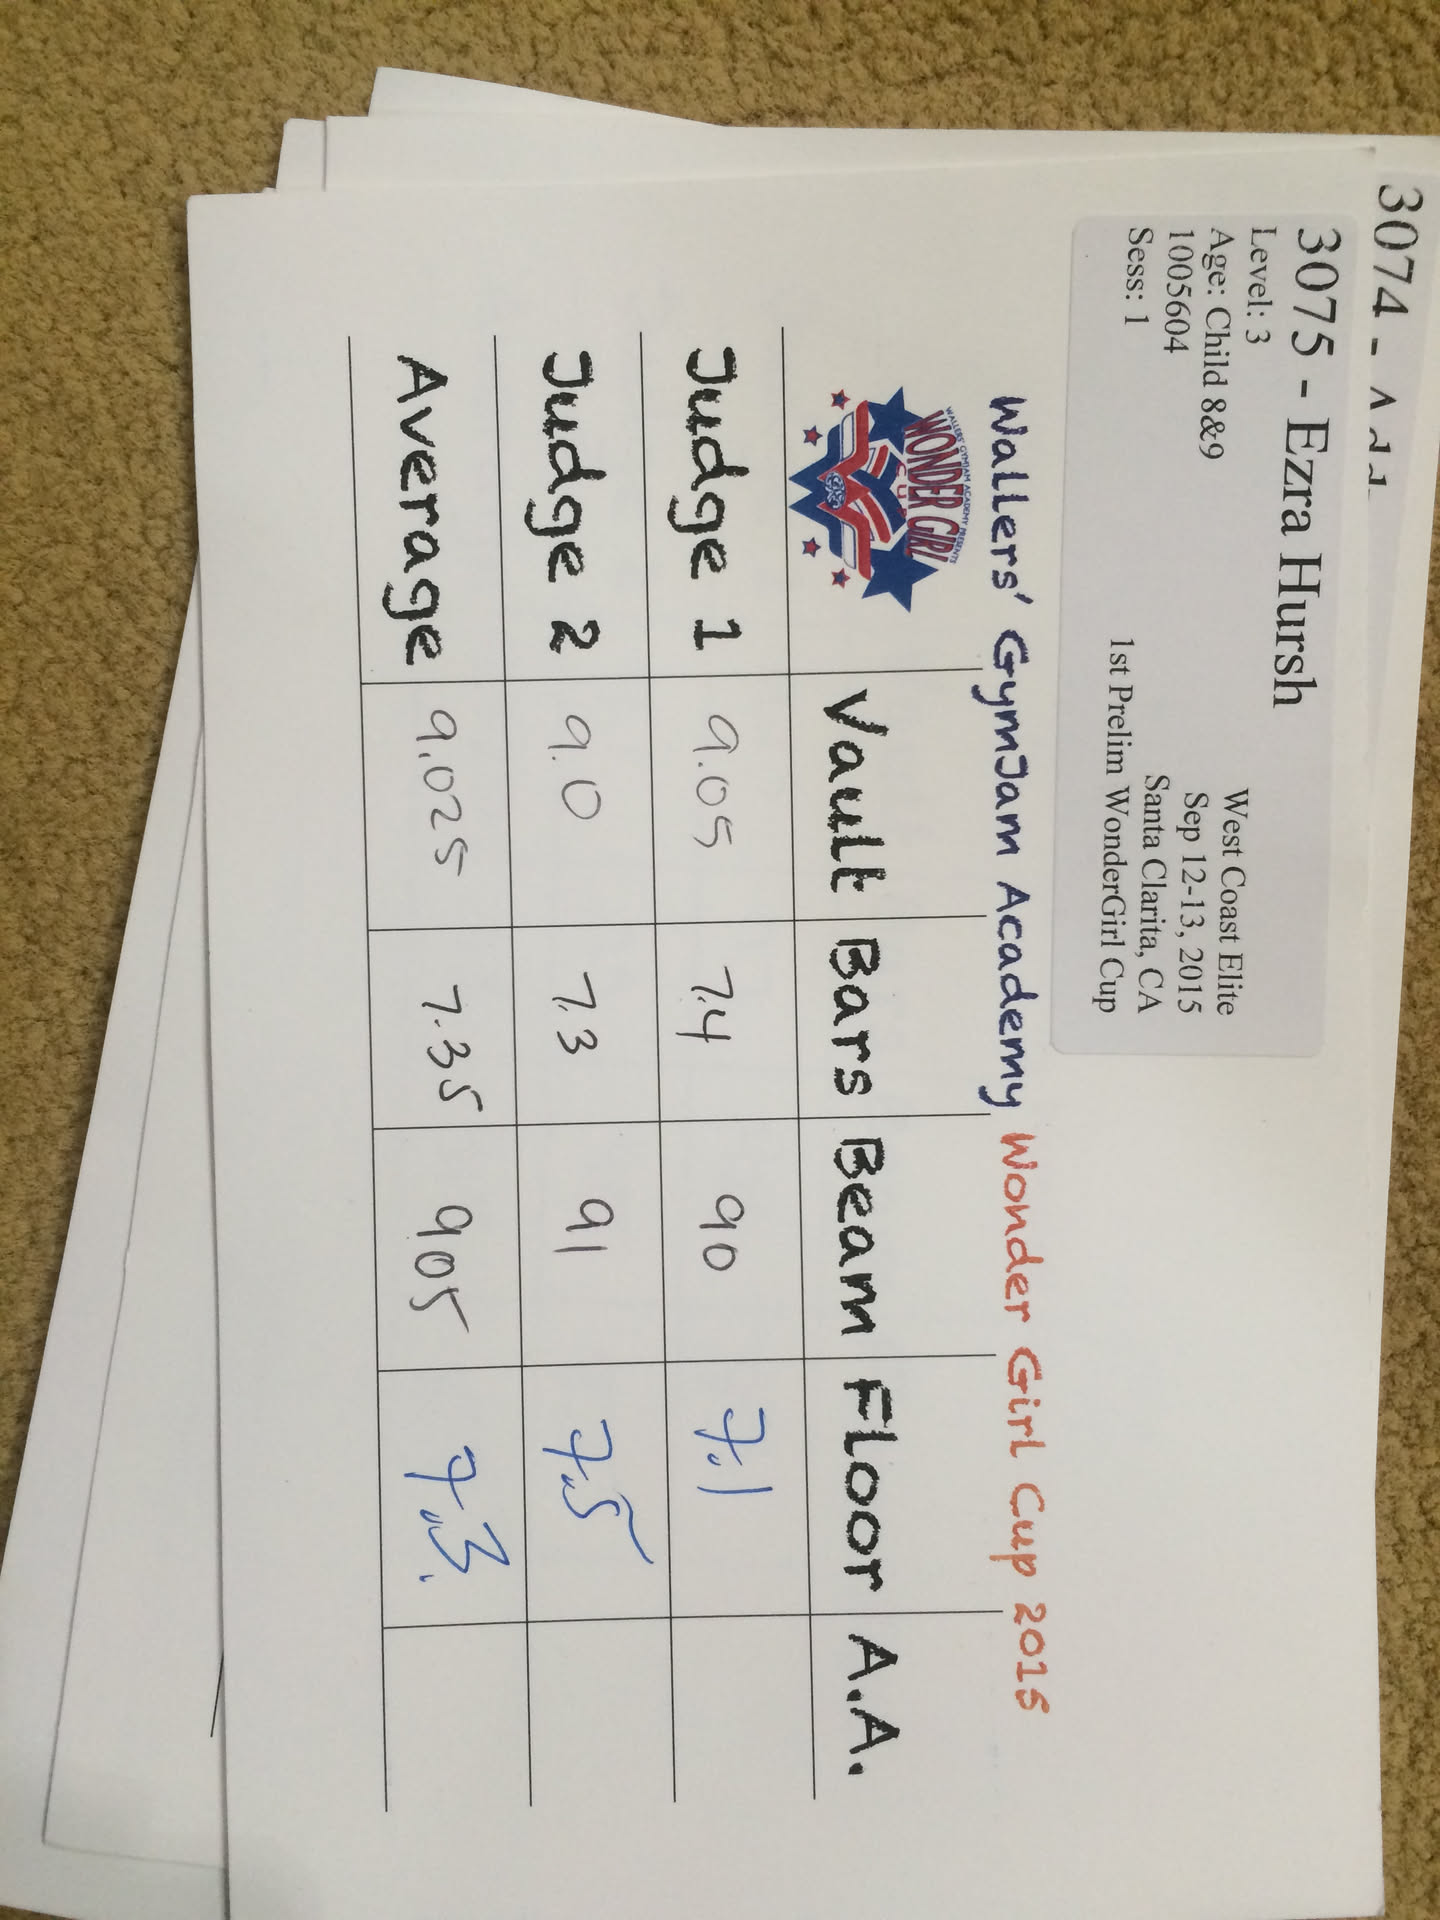 3074 - 
3075 - Ezra Hursh
Level: 3
Age: Child 8&9
1005604
Sess: 1
West Coast Elite
Sep 12-13, 2015
Santa Clarita, CA
1st Prelim WonderGirl Cup
Wallers' GymJam Academy Wonder Girl Cup 2015
WALLERS' GYMJAM ACADEMY PRESENTS
WONDER GIRL
CUP
Vault Bars Beam Floor A.A.
Judge 1 9.05 7.4 90 7.1
Judge 2 9.0 7.3 91 7.5
Average 9.025 7.35 905 7.3.